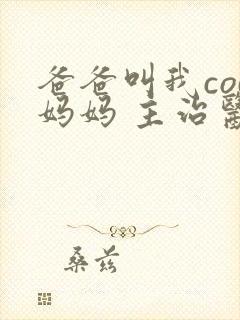 爸爸叫我co
妈妈 主治醫
桑兹